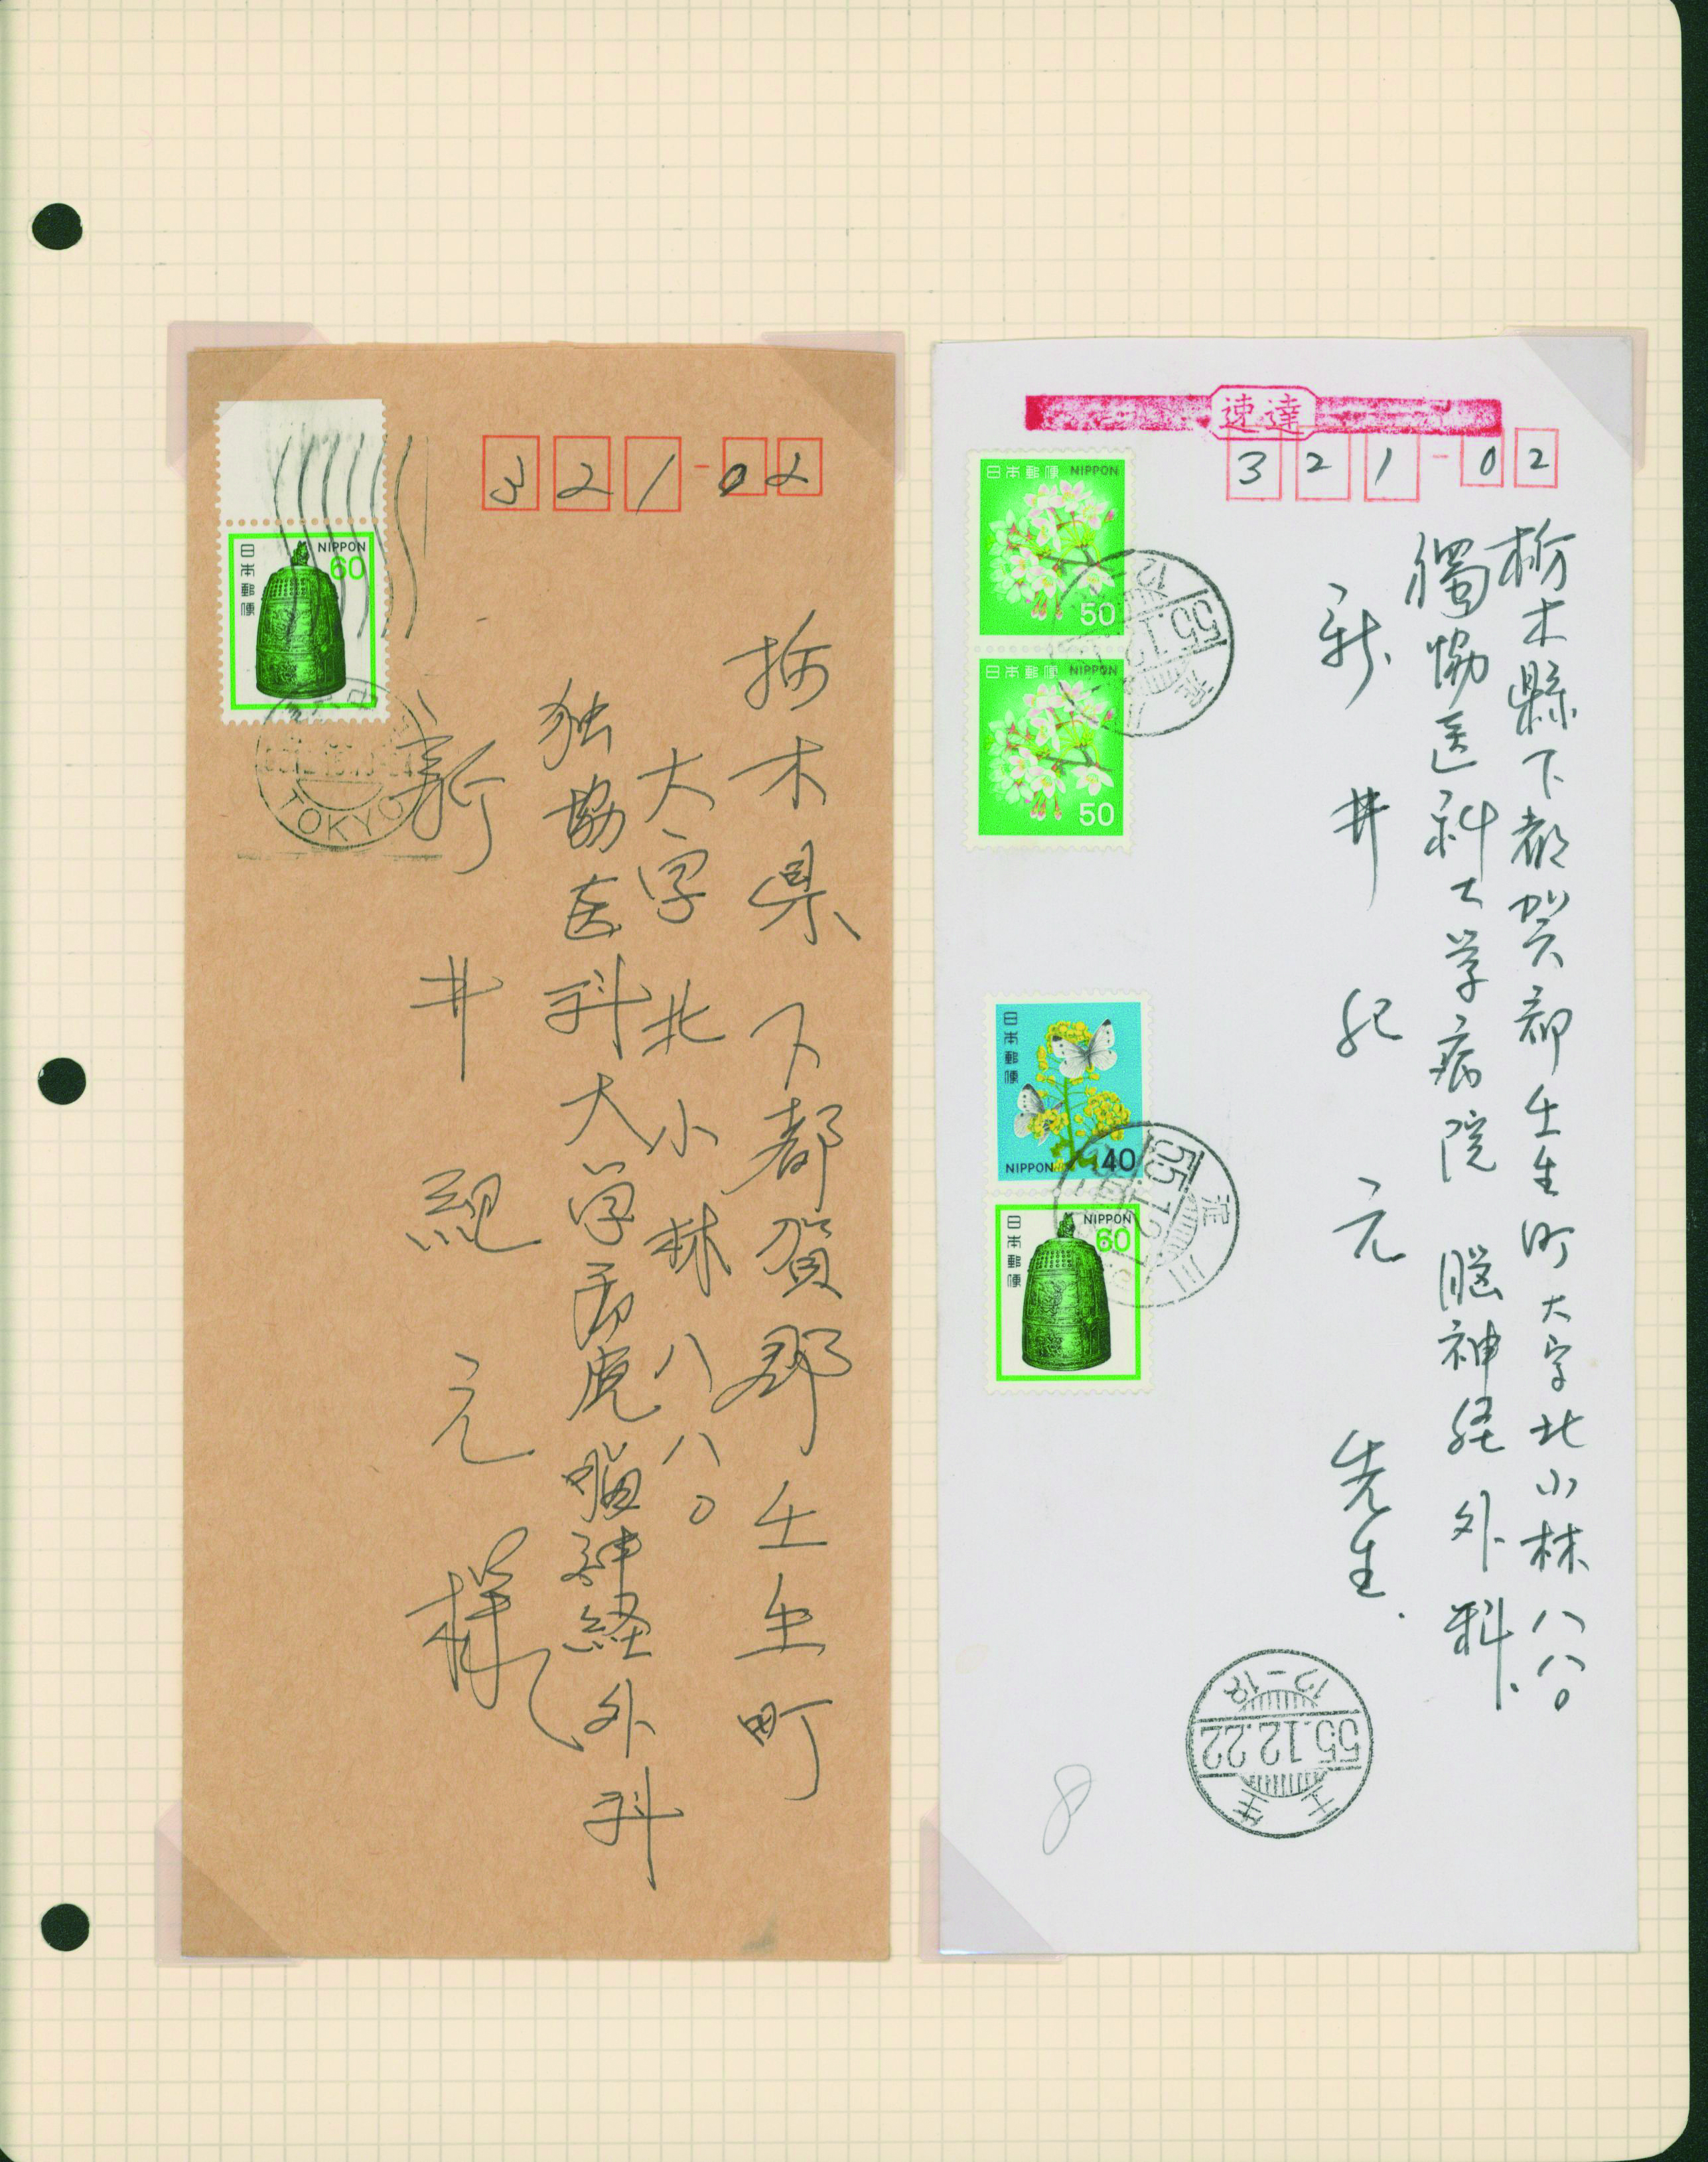 日本郵便
NIPPON
60
TOKYO
321-02
栃木県下都賀郡壬生町
大字北小林八八〇
独協医科大学病院脳神経外科
新井紀元様
速達
321-02
日本郵便 NIPPON
50
日本郵便 NIPPON
50
55.12
日本郵便
NIPPON 40
日本郵便
NIPPON
60
淀川
55.12
栃木縣下都賀郡壬生町大字北小林八八〇
獨協医科大学病院 脳神経外科
新井紀元先生
壬生
55.12.22
12-18
8